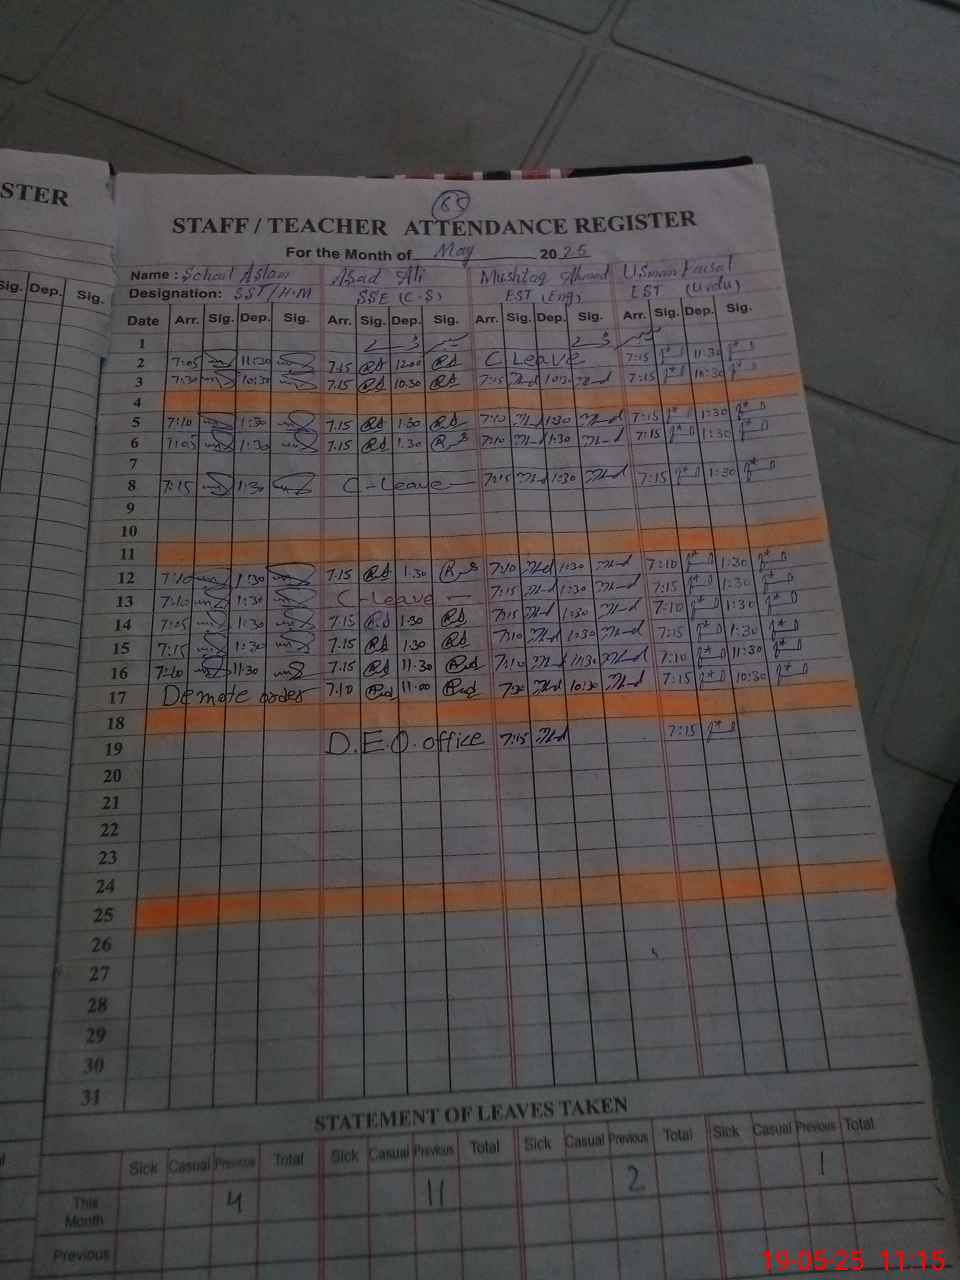 STER
65
STAFF / TEACHER ATTENDANCE REGISTER
For the Month of May 2025
Name : Sohail Aslam Asad Ali Mushtaq Ahmad Usman Faisal
Designation: SST/H.M SSE (C.S) EST (Eng) EST (Urdu)
Sig. Dep. Sig. Date Arr. Sig. Dep. Sig. Arr. Sig. Dep. Sig. Arr. Sig. Dep. Sig. Arr. Sig. Dep. Sig.
1
2 7:05 11:30 7.15 12:00 C Leave 7:15 11:30
3 7:30 10:30 7.15 10.30 7:15 10:30 7:15 10:30
4
5 7:10 1:30 7.15 1:30 7:10 1:30 7:15 1:30
6 7:05 1:30 7.15 1.30 7:10 1:30 7:15 1:30
7
8 7:15 1:30 C-Leave 7:15 1:30 7:15 1:30
9
10
11
12 7:10 1:30 7.15 1:30 7:10 1:30 7:10 1:30
13 7:10 1:30 C-Leave 7:15 1:30 7:15 1:30
14 7:05 1:30 7.15 1:30 7:15 1:30 7:10 1:30
15 7:15 1:30 7.15 1:30 7:10 1:30 7:15 1:30
16 7:10 11:30 7.15 11.30 7:10 11:30 7:10 11:30
17 De mote order 7:10 11:00 10:30 7:15 10:30
18
19 D.E.O. office 7:15 7:15
20
21
22
23
24
25
26
27
28
29
30
31
STATEMENT OF LEAVES TAKEN
Sick Casual Previous Total Sick Casual Previous Total Sick Casual Previous Total Sick Casual Previous Total
This Month 4 11 2 1
Previous
19-05-25 11:15